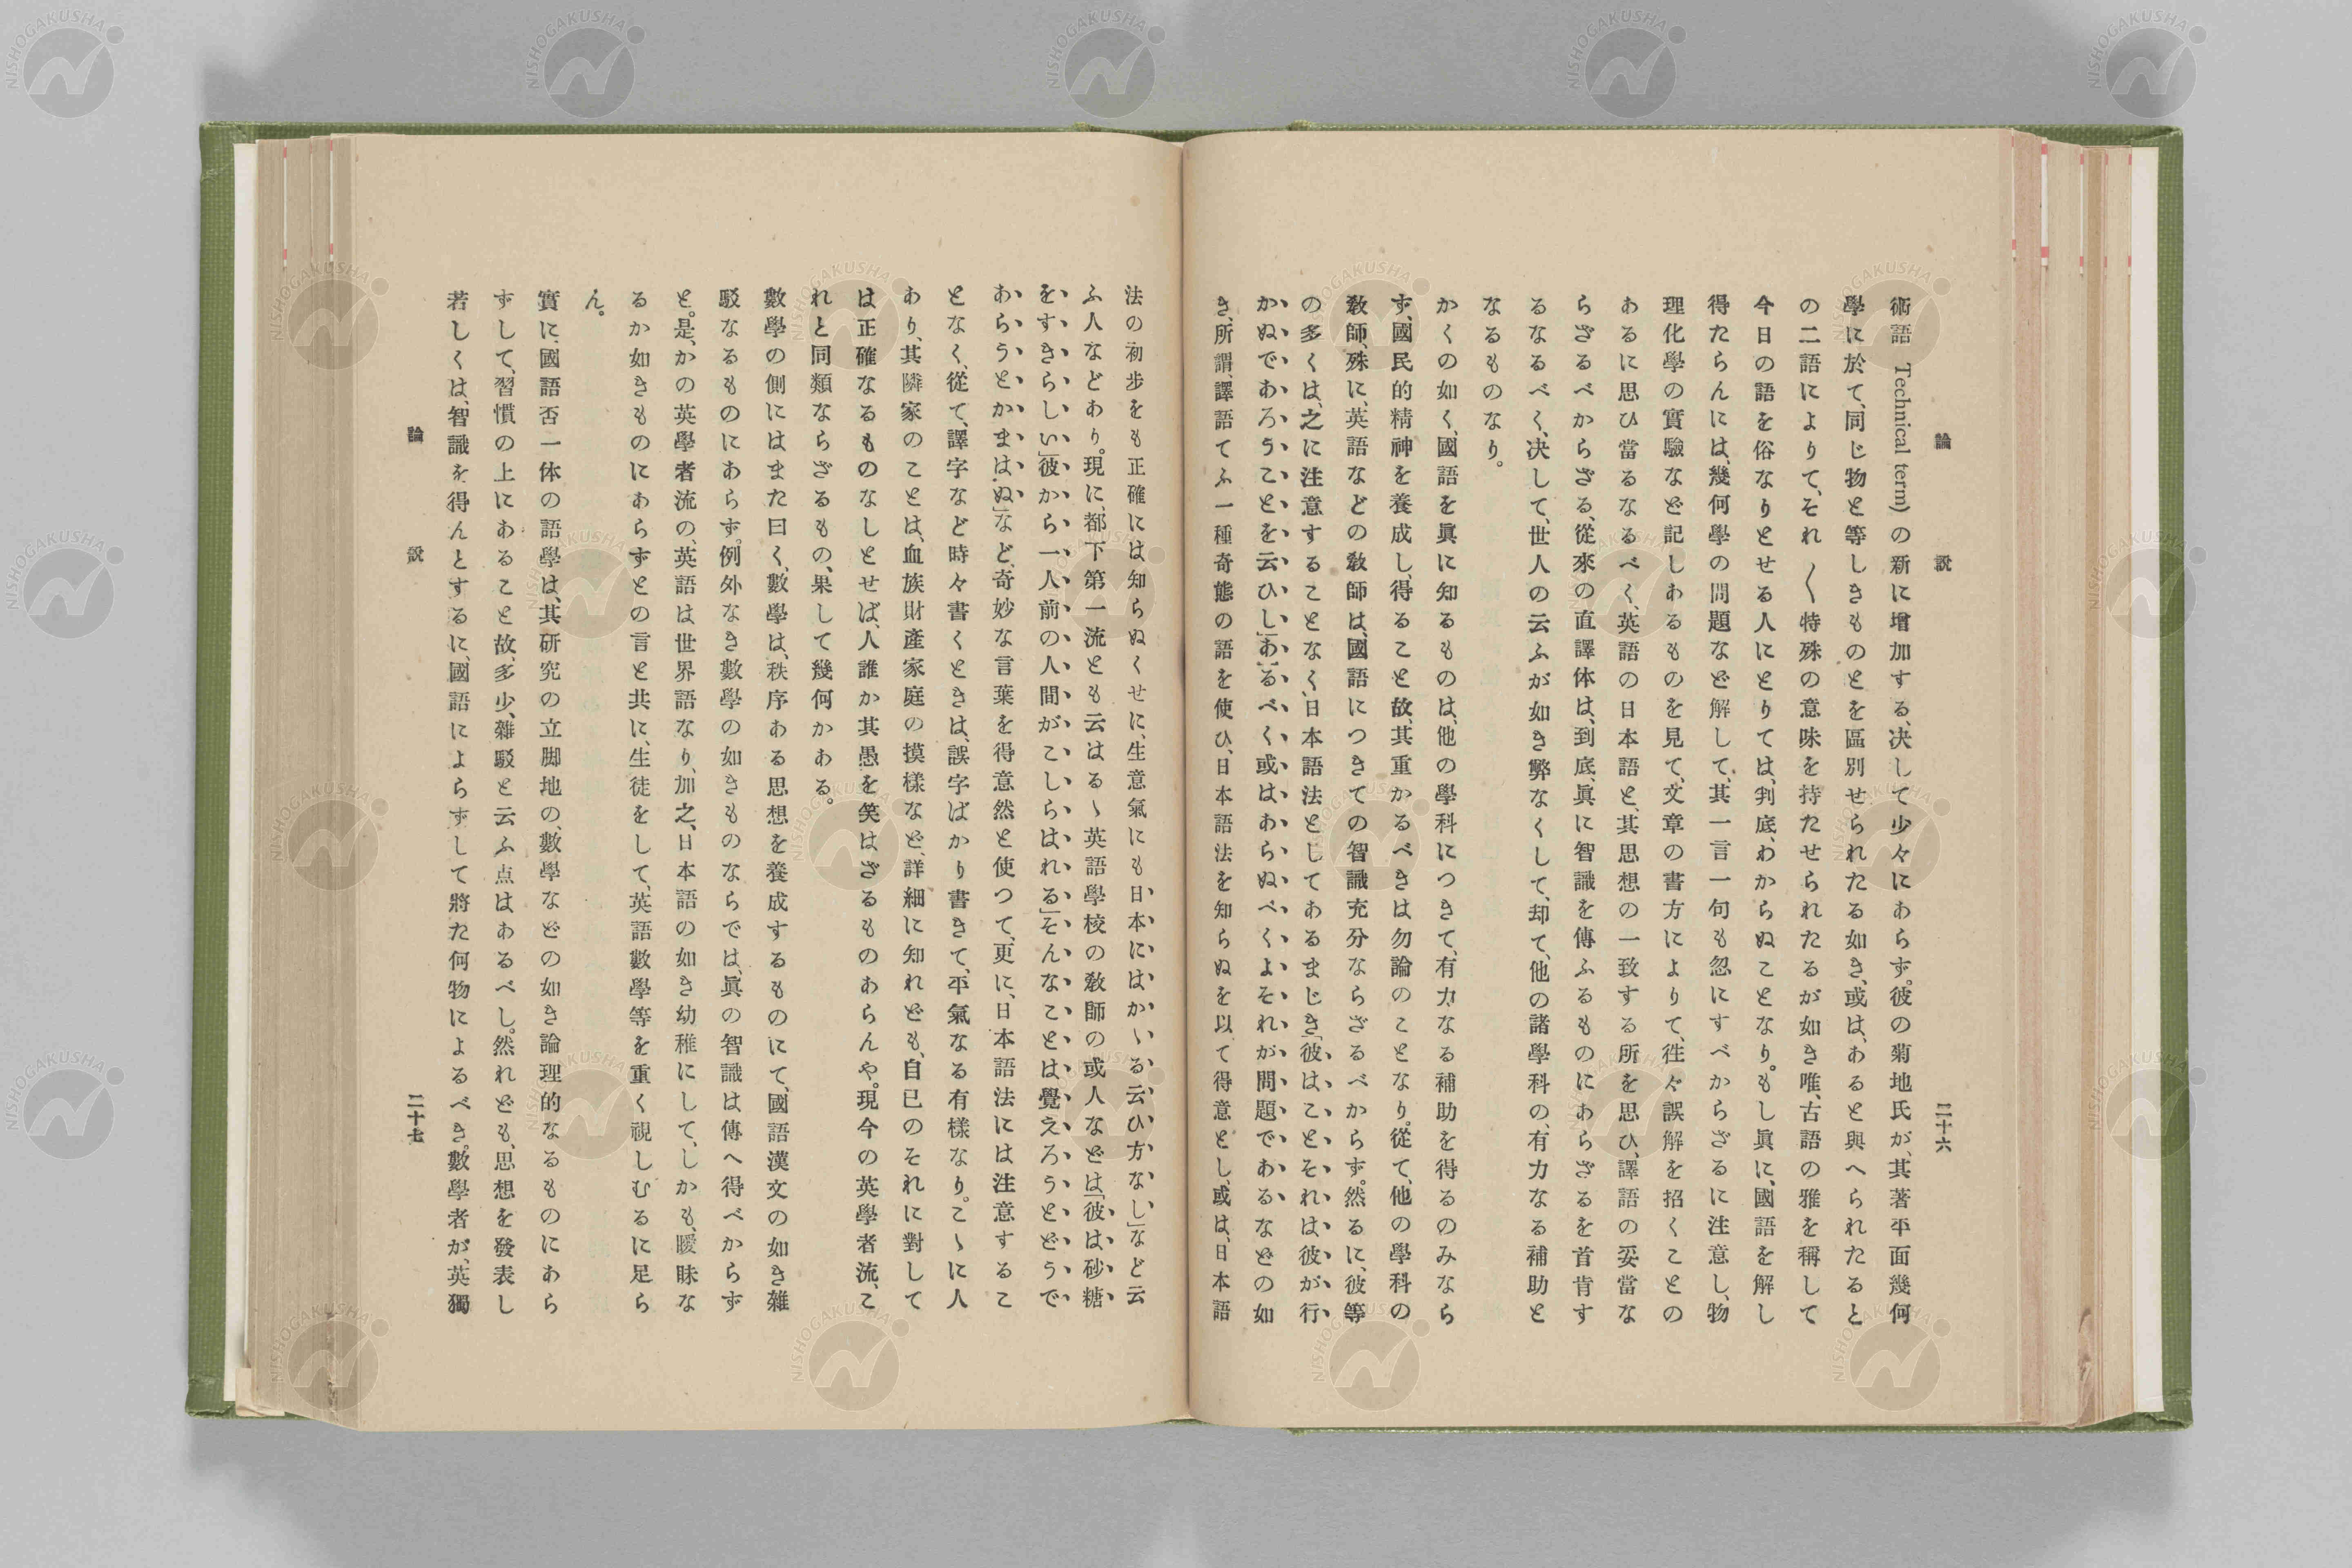 論説
二十六
術語 Technical term)の新に增加する、决して少々にあらず。彼の菊地氏が、其著平面幾何
學に於て、同じ物と等しきものとを區別せられたる如き、或は、あると與へられたると
の二語によりて、それ〳〵特殊の意味を持たせられたるが如き唯、古語の雅を稱して
今日の語を俗なりとせる人にとりては、到底、わからぬことなり。もし眞に、國語を解し
得たらんには、幾何學の問題など解して、其一言一句も忽にすべからざるに注意し、物
理化學の實驗など記しあるものを見て、文章の書方によりて、徃々誤解を招くことの
あるに思ひ當るなるべく、英語の日本語と、其思想の一致する所を思ひ、譯語の妥當な
らざるべからざる、從來の直譯体は、到底、眞に智識を傳ふるものにあらざるを首肯す
るなるべく、决して、世人の云ふが如き弊なくして、却て、他の諸學科の、有力なる補助と
なるものなり。
かくの如く、國語を眞に知るものは、他の學科につきて、有力なる補助を得るのみなら
ず、國民的精神を養成し、得ること故、其重かるべきは勿論のことなり。從て、他の學科の
敎師、殊に、英語などの敎師は、國語につきての智識充分ならざるべからず。然るに、彼等
の多くは、之に注意することなく、日本語法としてあるまじき、「彼は、ことそれは彼が行
かぬであろうことを云ひし」「あるべく或はあらぬべくよそれが問題であるなどの如
き、所謂、譯語てふ一種奇態の語を使ひ、日本語法を知らぬを以て得意とし、或は、日本語
法の初步をも正確には知らぬくせに、生意氣にも日本にはかゝる云ひ方なし」など云
ふ人などあり。現に、都下第一流とも云はるゝ英語學校の敎師の或人などは「彼は砂糖
をすきらしい」「彼から一人前の人間がこしらはれる」「そんなことは覺えろうとどうで
あらうとかまはぬ」など、奇妙な言葉を得意然と使つて、更に、日本語法には注意するこ
となく、從て、譯字など時々書くときは、誤字ばかり書きて、平氣なる有樣なり。こゝに人
あり、其隣家のことは、血族財產家庭の摸樣など、詳細に知れども、自已のそれに對して
は正確なるものなしとせば、人誰か其愚を笑はざるものあらんや。現今の英學者流、こ
れと同類ならざるもの、果して幾何かある。
數學の側にはまた曰く、數學は、秩序ある思想を養成するものにて、國語漢文の如き雜
駁なるものにあらず。例外なき數學の如きものならでは、眞の智識は傳へ得べからず
と。是、かの英學者流の、英語は世界語なり、加之、日本語の如き幼稚にして、しかも、曖眛な
るか如きものにあらずとの言と共に、生徒をして、英語數學等を重く視しむるに足ら
ん。
實に、國語否一体の語學は、其研究の立脚地の、數學などの如き論理的なるものにあら
ずして、習慣の上にあること故、多少、雜駁と云ふ点はあるべし。然れども、思想を發表し
若しくは、智識を得んとするに、國語によらずして將た何物によるべき。數學者が、英獨
論説
二十七